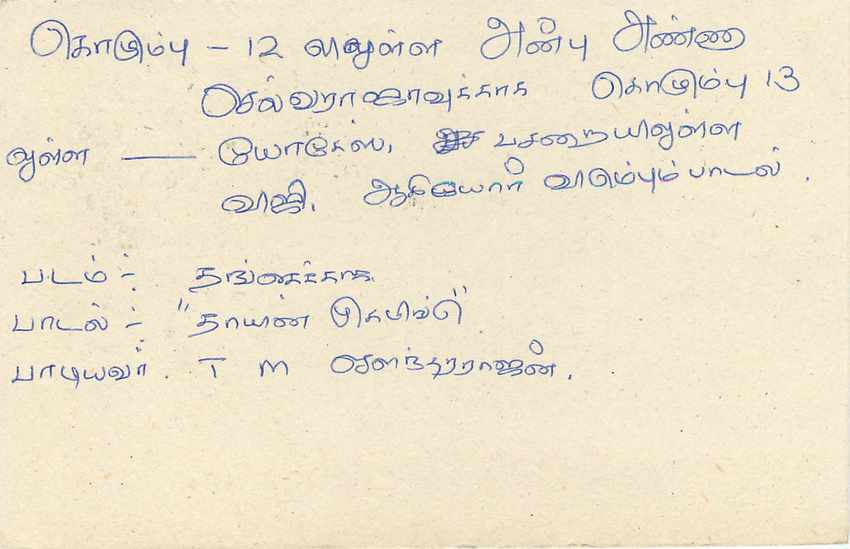 கொழும்பு - 12 லுவுள்ள அன்பு அண்ணா
செல்வராஜாவுக்காக கொழும்பு 13
லுள்ள — யோகேஸ், பசறையிலுள்ள
விஜி, ஆகியோர் விரும்பும் பாடல்.
படம் :- தங்கைக்காக
பாடல் :- "தாயின் முகமிங்கு"
பாடியவர். T M சௌந்தரராஜன்.